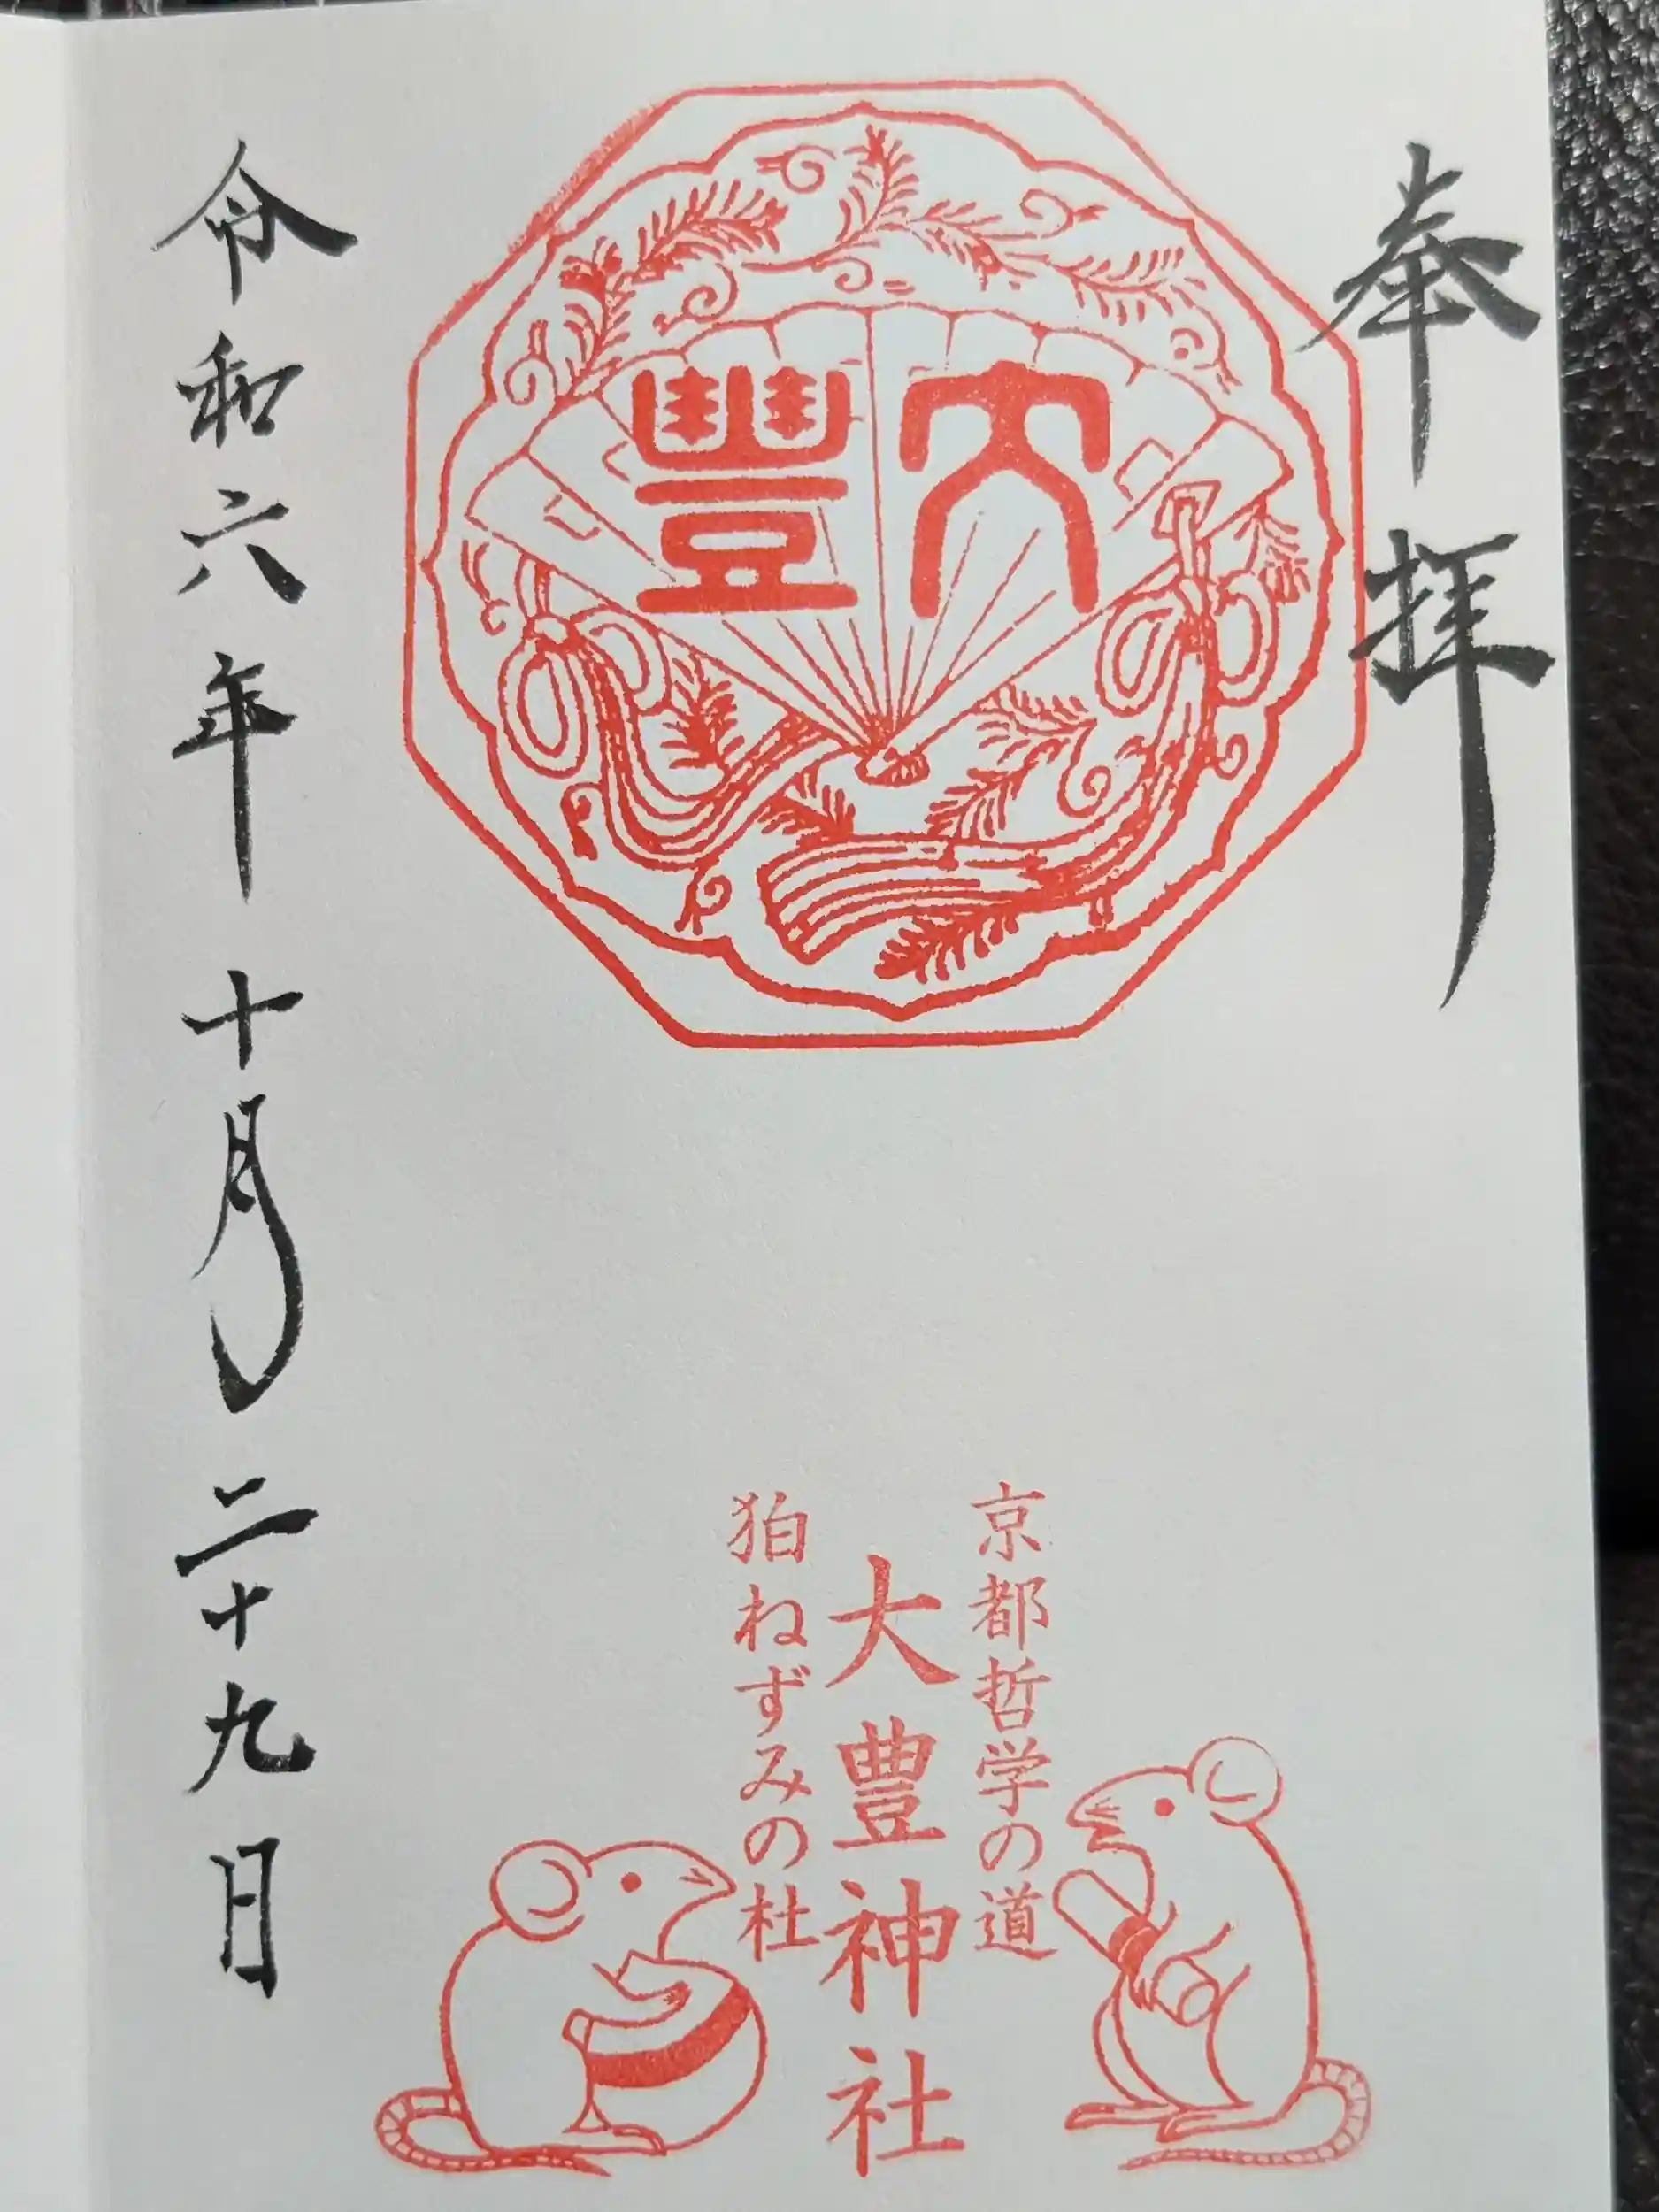 奉拝
大豐
京都哲学の道
大豊神社
狛ねずみの杜
令和六年十月二十九日